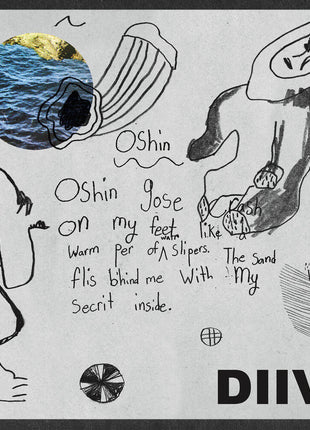 Oshin
Oshin gose Crash
on my feet like a
warm per of watr slipers. The sand
flis bihind me with My
Secrit inside.
DIIV